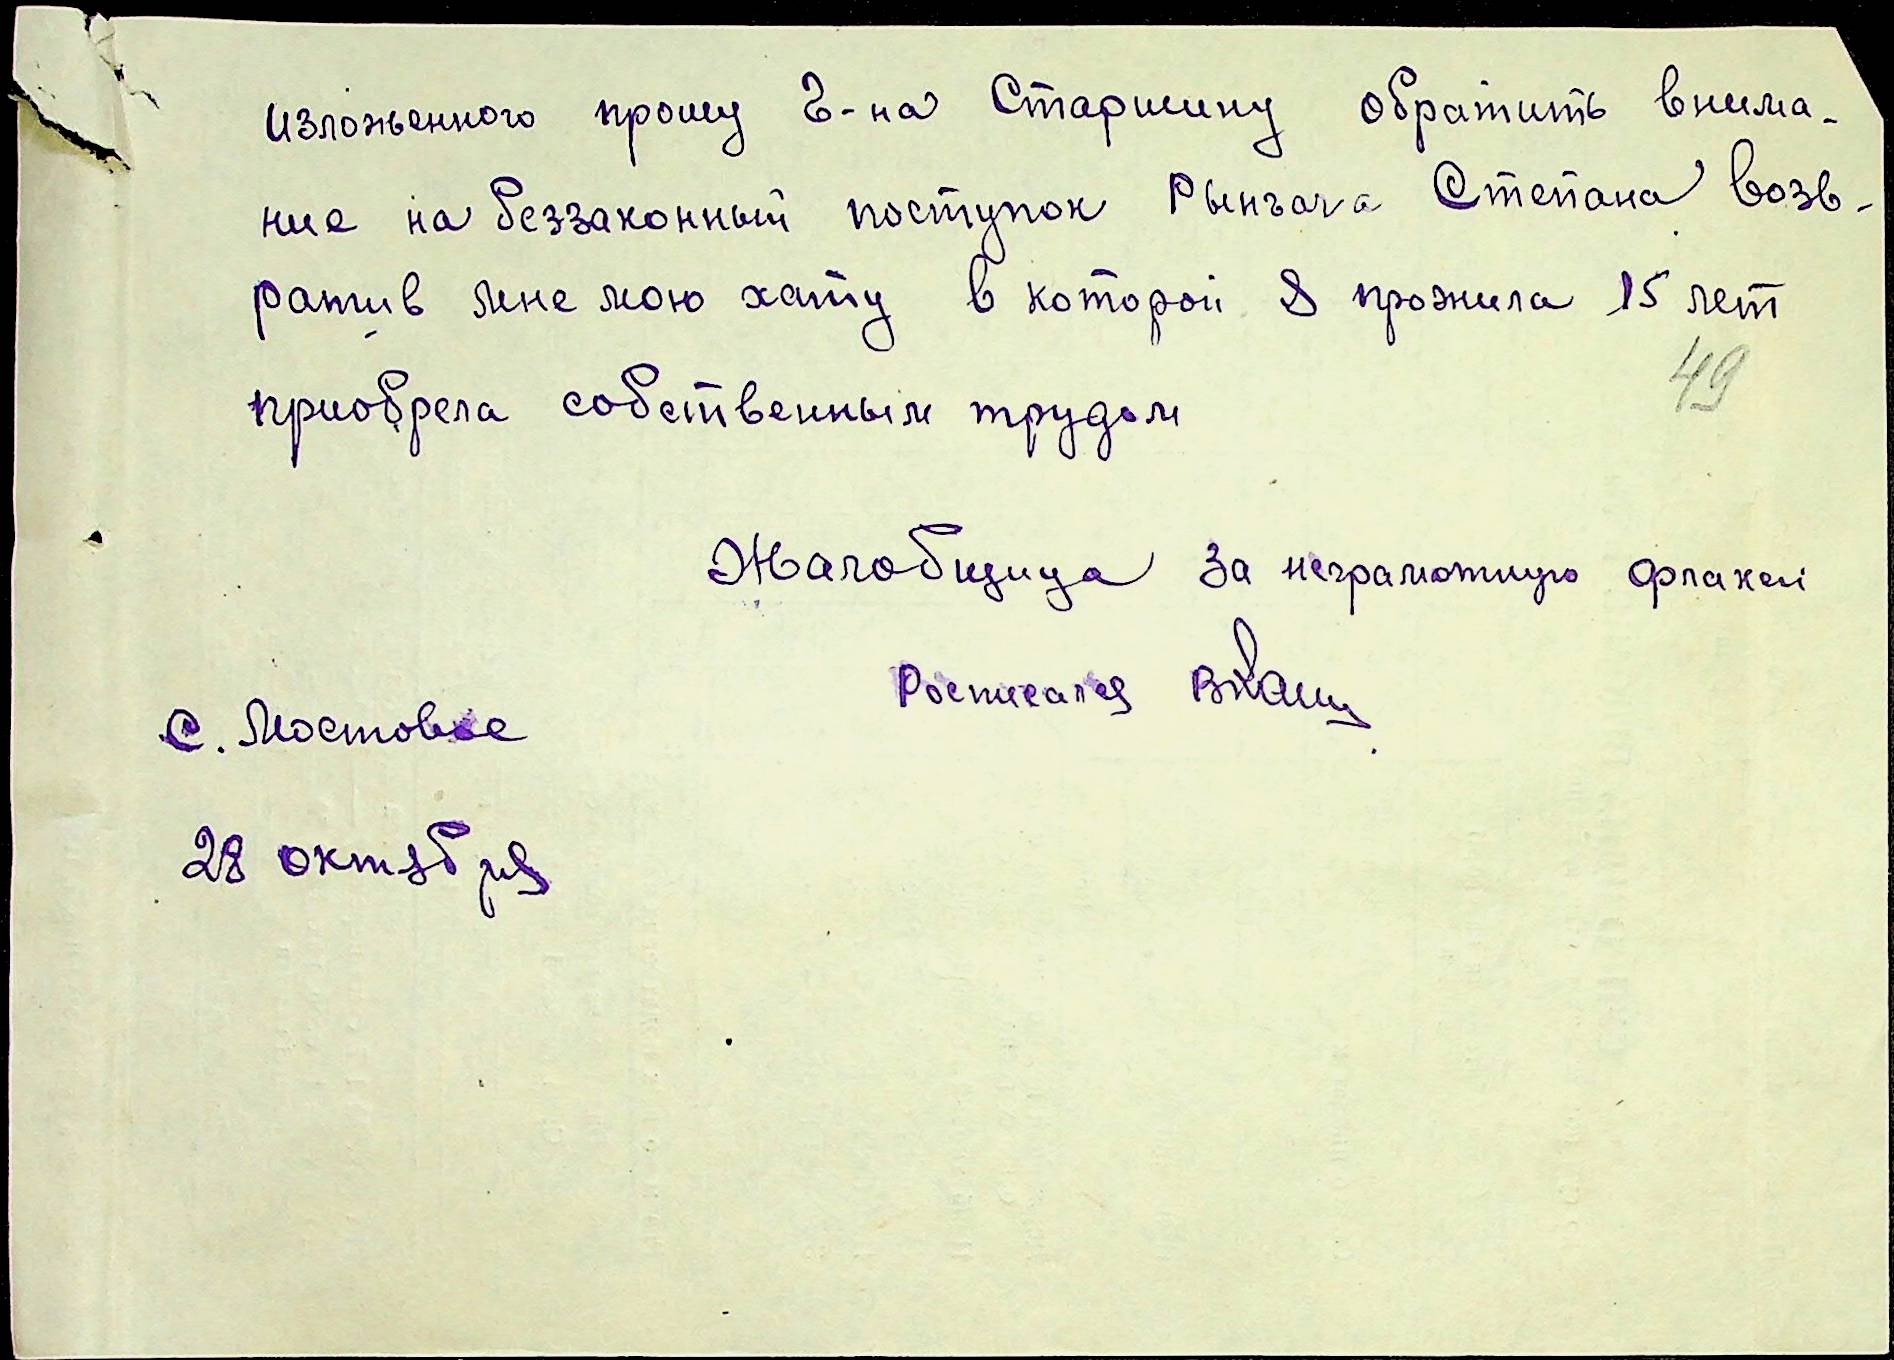 изложенного прошу Г-на Старшину обратить внима-
ние на беззаконный поступок Рынгача Степана возв-
ратив мне мою хату в которой я прожила 15 лет
49
приобрела собственным трудом
Жалобщица за неграмотную
Росписался
с. Мостовое
28 октября